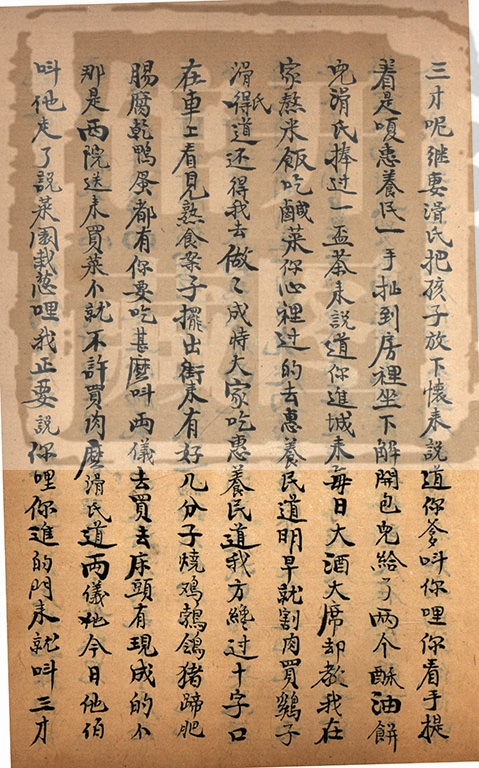 三才呢継妻滑氏把孩子放下懷来説道你爹呌你哩你看手提
着是嗄惠養民一手扯到房裡坐下解開包児給了两个酥油餅
児滑氏捧过一盃茶来説道你進城来每日大酒大席却教我在
家熬米飯吃醎菜你心裡过的去惠養民道明早就割肉買鷄子
滑氏道还得我去做〻成時大家吃惠養民道我方纔过十字口
在車上看見熟食案子擺出街来有好几分子燒鸡鵓鴿猪蹄肥
腸腐乾鴨蛋都有你要吃甚麽呌两儀去買去床頭有現成的小
那是两院送来買菜小就不許買肉麽滑氏道两儀他今日他伯
呌他走了説菜園栽葱哩我正要説你哩你進的門来就呌三才